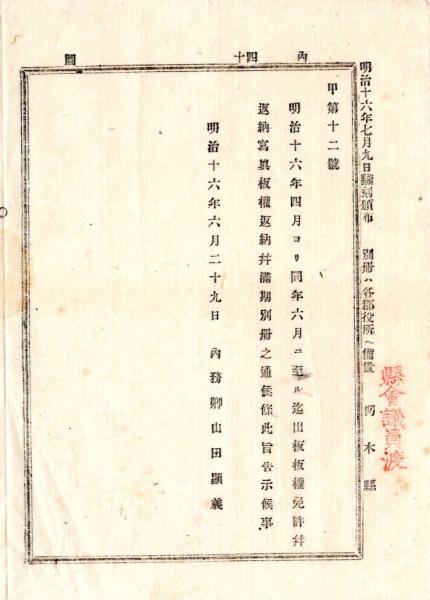 内
四十
圖
明治十六年七月九日飜刻頒布　別冊ハ各郡役所ヘ備置　栃木縣
縣會議員渡
甲第十二號
明治十六年四月ヨリ同年六月ニ至ル迄出板板權免許幷
返納寫眞板權返納幷滿期別冊之通候條此旨告示候事
明治十六年六月二十九日　內務卿山田顯義